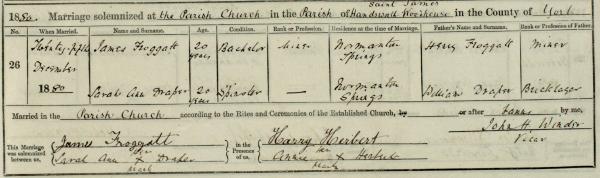 Saint James
1880. Marriage solemnized at the Parish Church in the Parish of Handswall Woodhouse in the County of York
No. When Married. Name and Surname. Age. Condition. Rank or Profession. Residence at the time of Marriage. Father's Name and Surname. Rank or Profession of Father.
26 Twenty-fifth December 1880 James Froggatt 20 years Bachelor Miner Normanton Springs Henry Froggatt Miner
Sarah Ann Draper 20 years Spinster — Normanton Springs William Draper Bricklayer
Married in the Parish Church according to the Rites and Ceremonies of the Established Church, by or after Banns by me,
John H. Winder
Vicar
This Marriage was solemnized between us,
James Froggatt
Sarah Ann X Draper
her mark
in the Presence of us,
Harry Herbert
Annie X Herbert
her mark